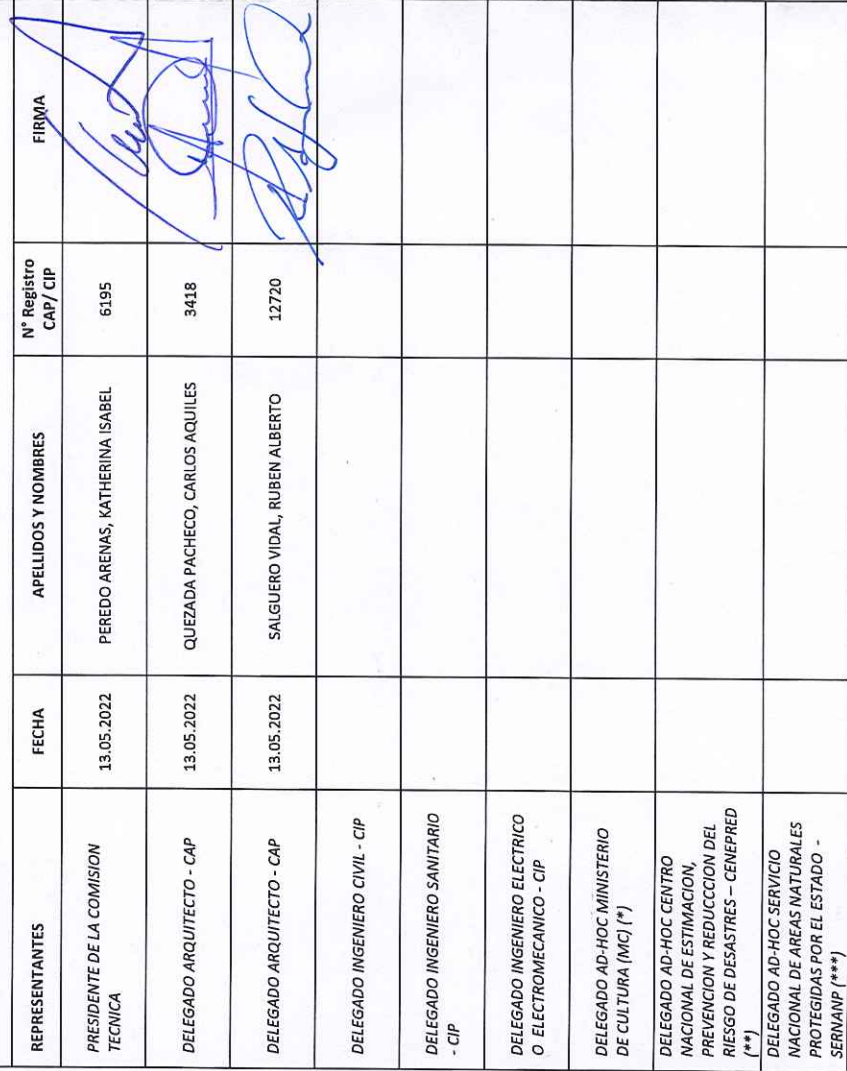 REPRESENTANTES FECHA APELLIDOS Y NOMBRES N° Registro FIRMA
CAP/ CIP
PRESIDENTE DE LA COMISION
TECNICA 13.05.2022 PEREDO ARENAS, KATHERINA ISABEL 6195
DELEGADO ARQUITECTO - CAP 13.05.2022 QUEZADA PACHECO, CARLOS AQUILES 3418
DELEGADO ARQUITECTO - CAP 13.05.2022 SALGUERO VIDAL, RUBEN ALBERTO 12720
DELEGADO INGENIERO CIVIL - CIP
DELEGADO INGENIERO SANITARIO
- CIP
DELEGADO INGENIERO ELECTRICO
O ELECTROMECANICO - CIP
DELEGADO AD-HOC MINISTERIO
DE CULTURA (MC) (*)
DELEGADO AD-HOC CENTRO
NACIONAL DE ESTIMACION,
PREVENCION Y REDUCCCION DEL
RIESGO DE DESASTRES – CENEPRED
(**)
DELEGADO AD-HOC SERVICIO
NACIONAL DE AREAS NATURALES
PROTEGIDAS POR EL ESTADO -
SERNANP (***)